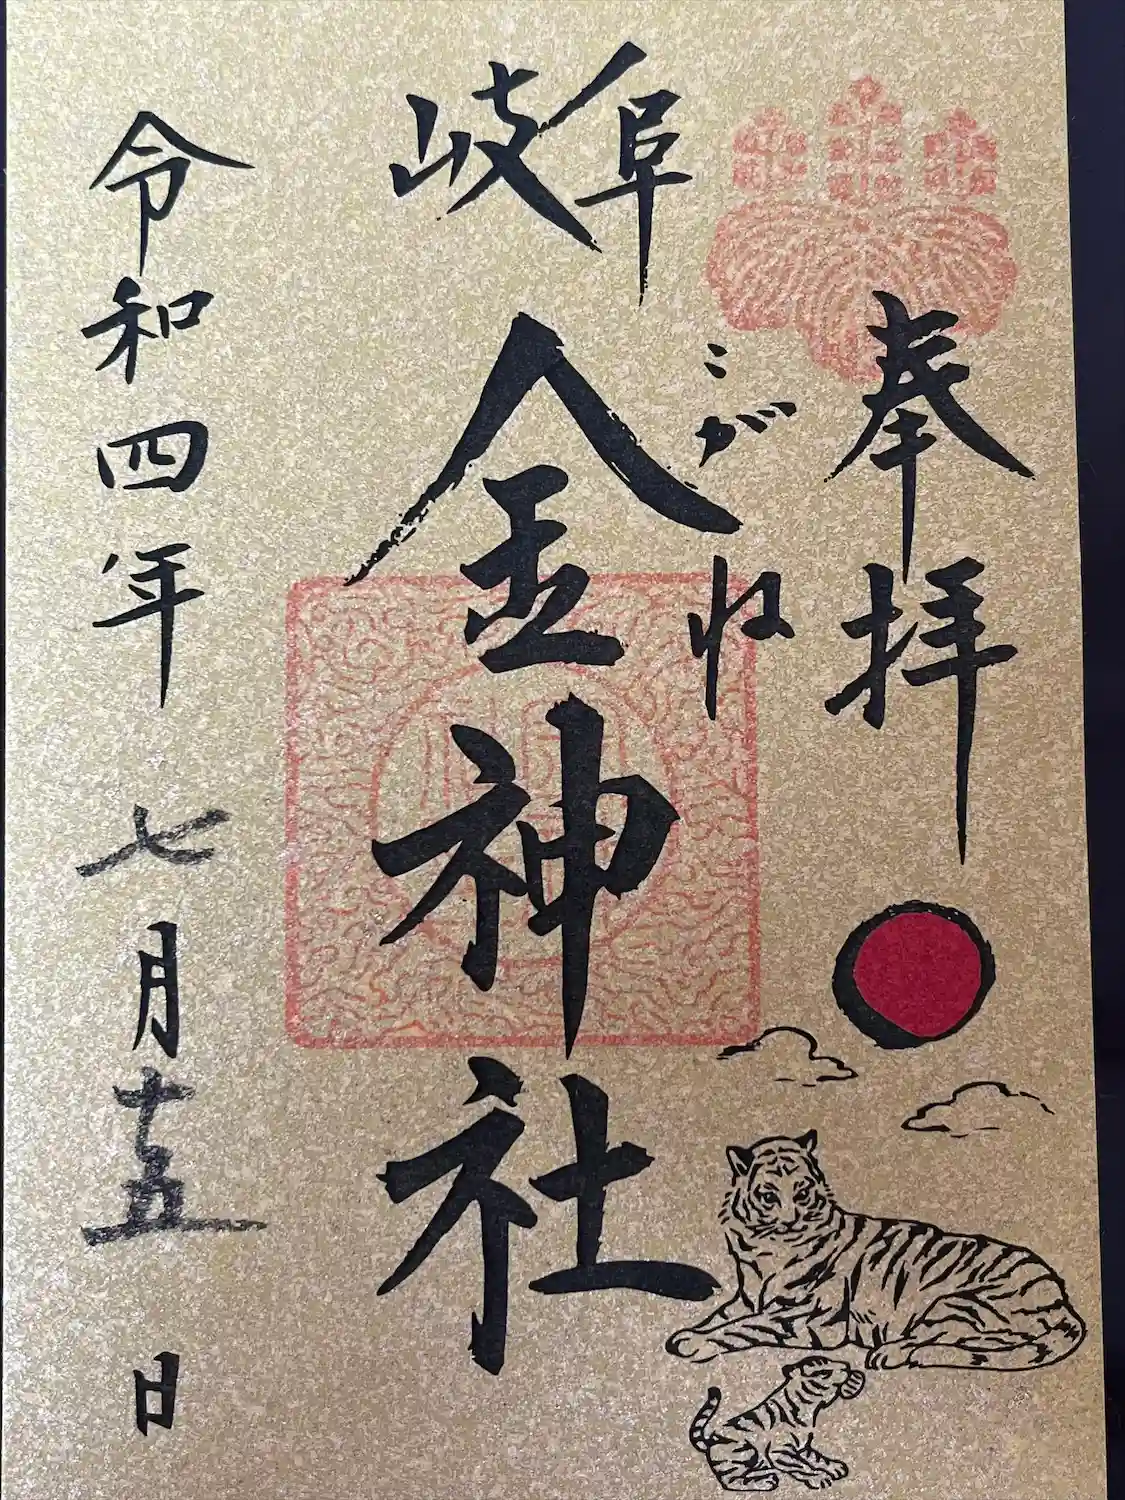 奉拝
岐阜
こがね
金神社
令和四年七月十五日